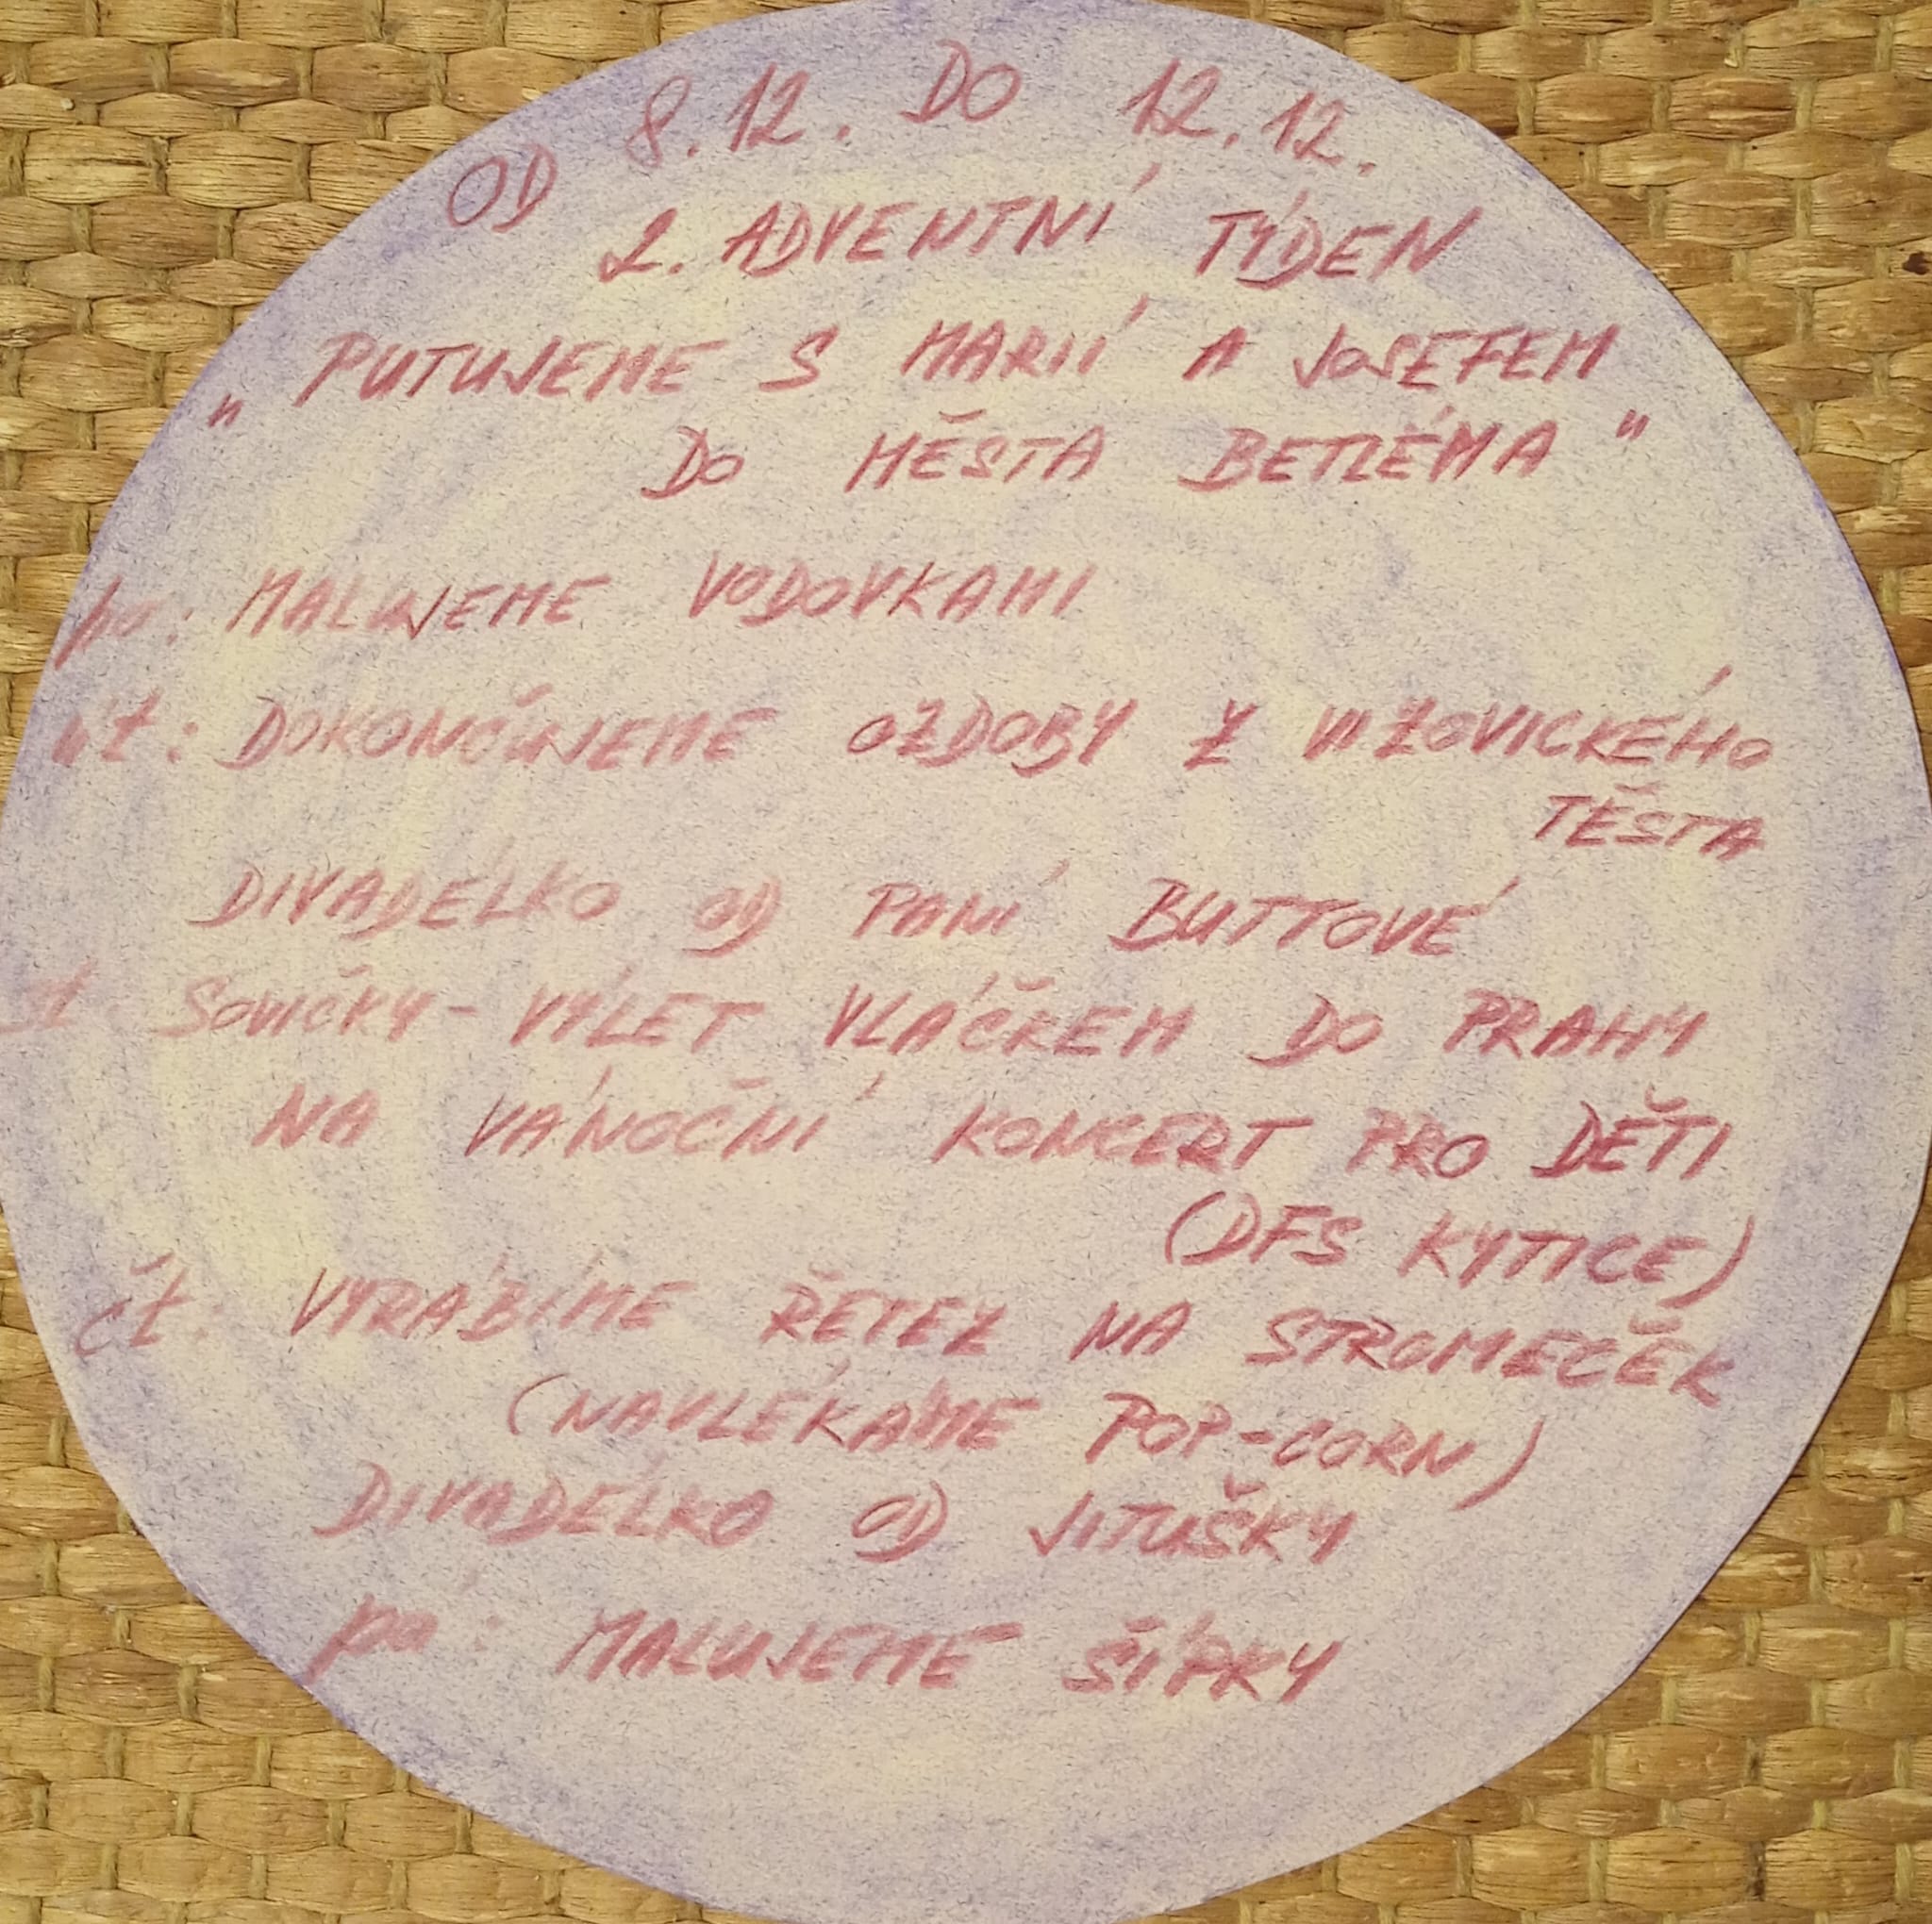 OD 8.12. DO 12.12.
2. ADVENTNÍ TÝDEN
„PUTUJEME S MARIÍ A JOSEFEM
DO MĚSTA BETLÉMA"
po: MALUJEME VODOVKAMI
út: DOKONČUJEME OZDOBY Z VIZOVICKÉHO
TĚSTA
DIVADÉLKO OD PANÍ BUTTOVÉ
st SOVIČKY - VÝLET VLÁČKEM DO PRAHY
NA VÁNOČNÍ KONCERT PRO DĚTI
(DFS KYTICE)
čt. VYRÁBÍME ŘETEZ NA STROMEČEK
(NAVLÉKÁME POP-CORN)
DIVADÉLKO OD JITUŠKY
pá: MALUJEME ŠÍPKY